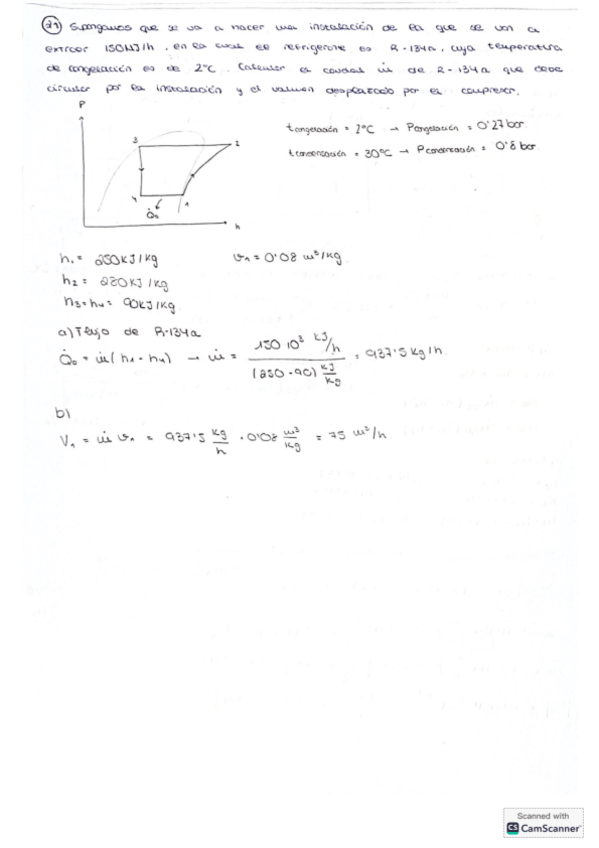 21) Supongamos que se va a hacer una instalación de la que se van a
extraer 150MJ/h, en la cual el refrigerante es R-134a, cuya temperatura
de congelación es de 2°C. Calcular el caudal ṁ de R-134a que debe
circular por la instalación y el volumen desplazado por el compresor.
P
3
2
4
1
Q̇₀
h
t congelación = 2°C → P congelación = 0'27 bar
t condensación = 30°C → P condensación = 0'8 bar
h₁ = 250KJ/Kg
v₁ = 0'08 m³/kg
h₂ = 280KJ/Kg
h₃=h₄= 90KJ/Kg
a) Flujo de R-134a
Q̇₀ = ṁ(h₁ - h₄) → ṁ = 150·10³ KJ/h / (250-90) KJ/Kg = 937'5 Kg/h
b)
V₁ = ṁ v₁ = 937'5 Kg/h · 0'08 m³/Kg = 75 m³/h
Scanned with
CS CamScanner